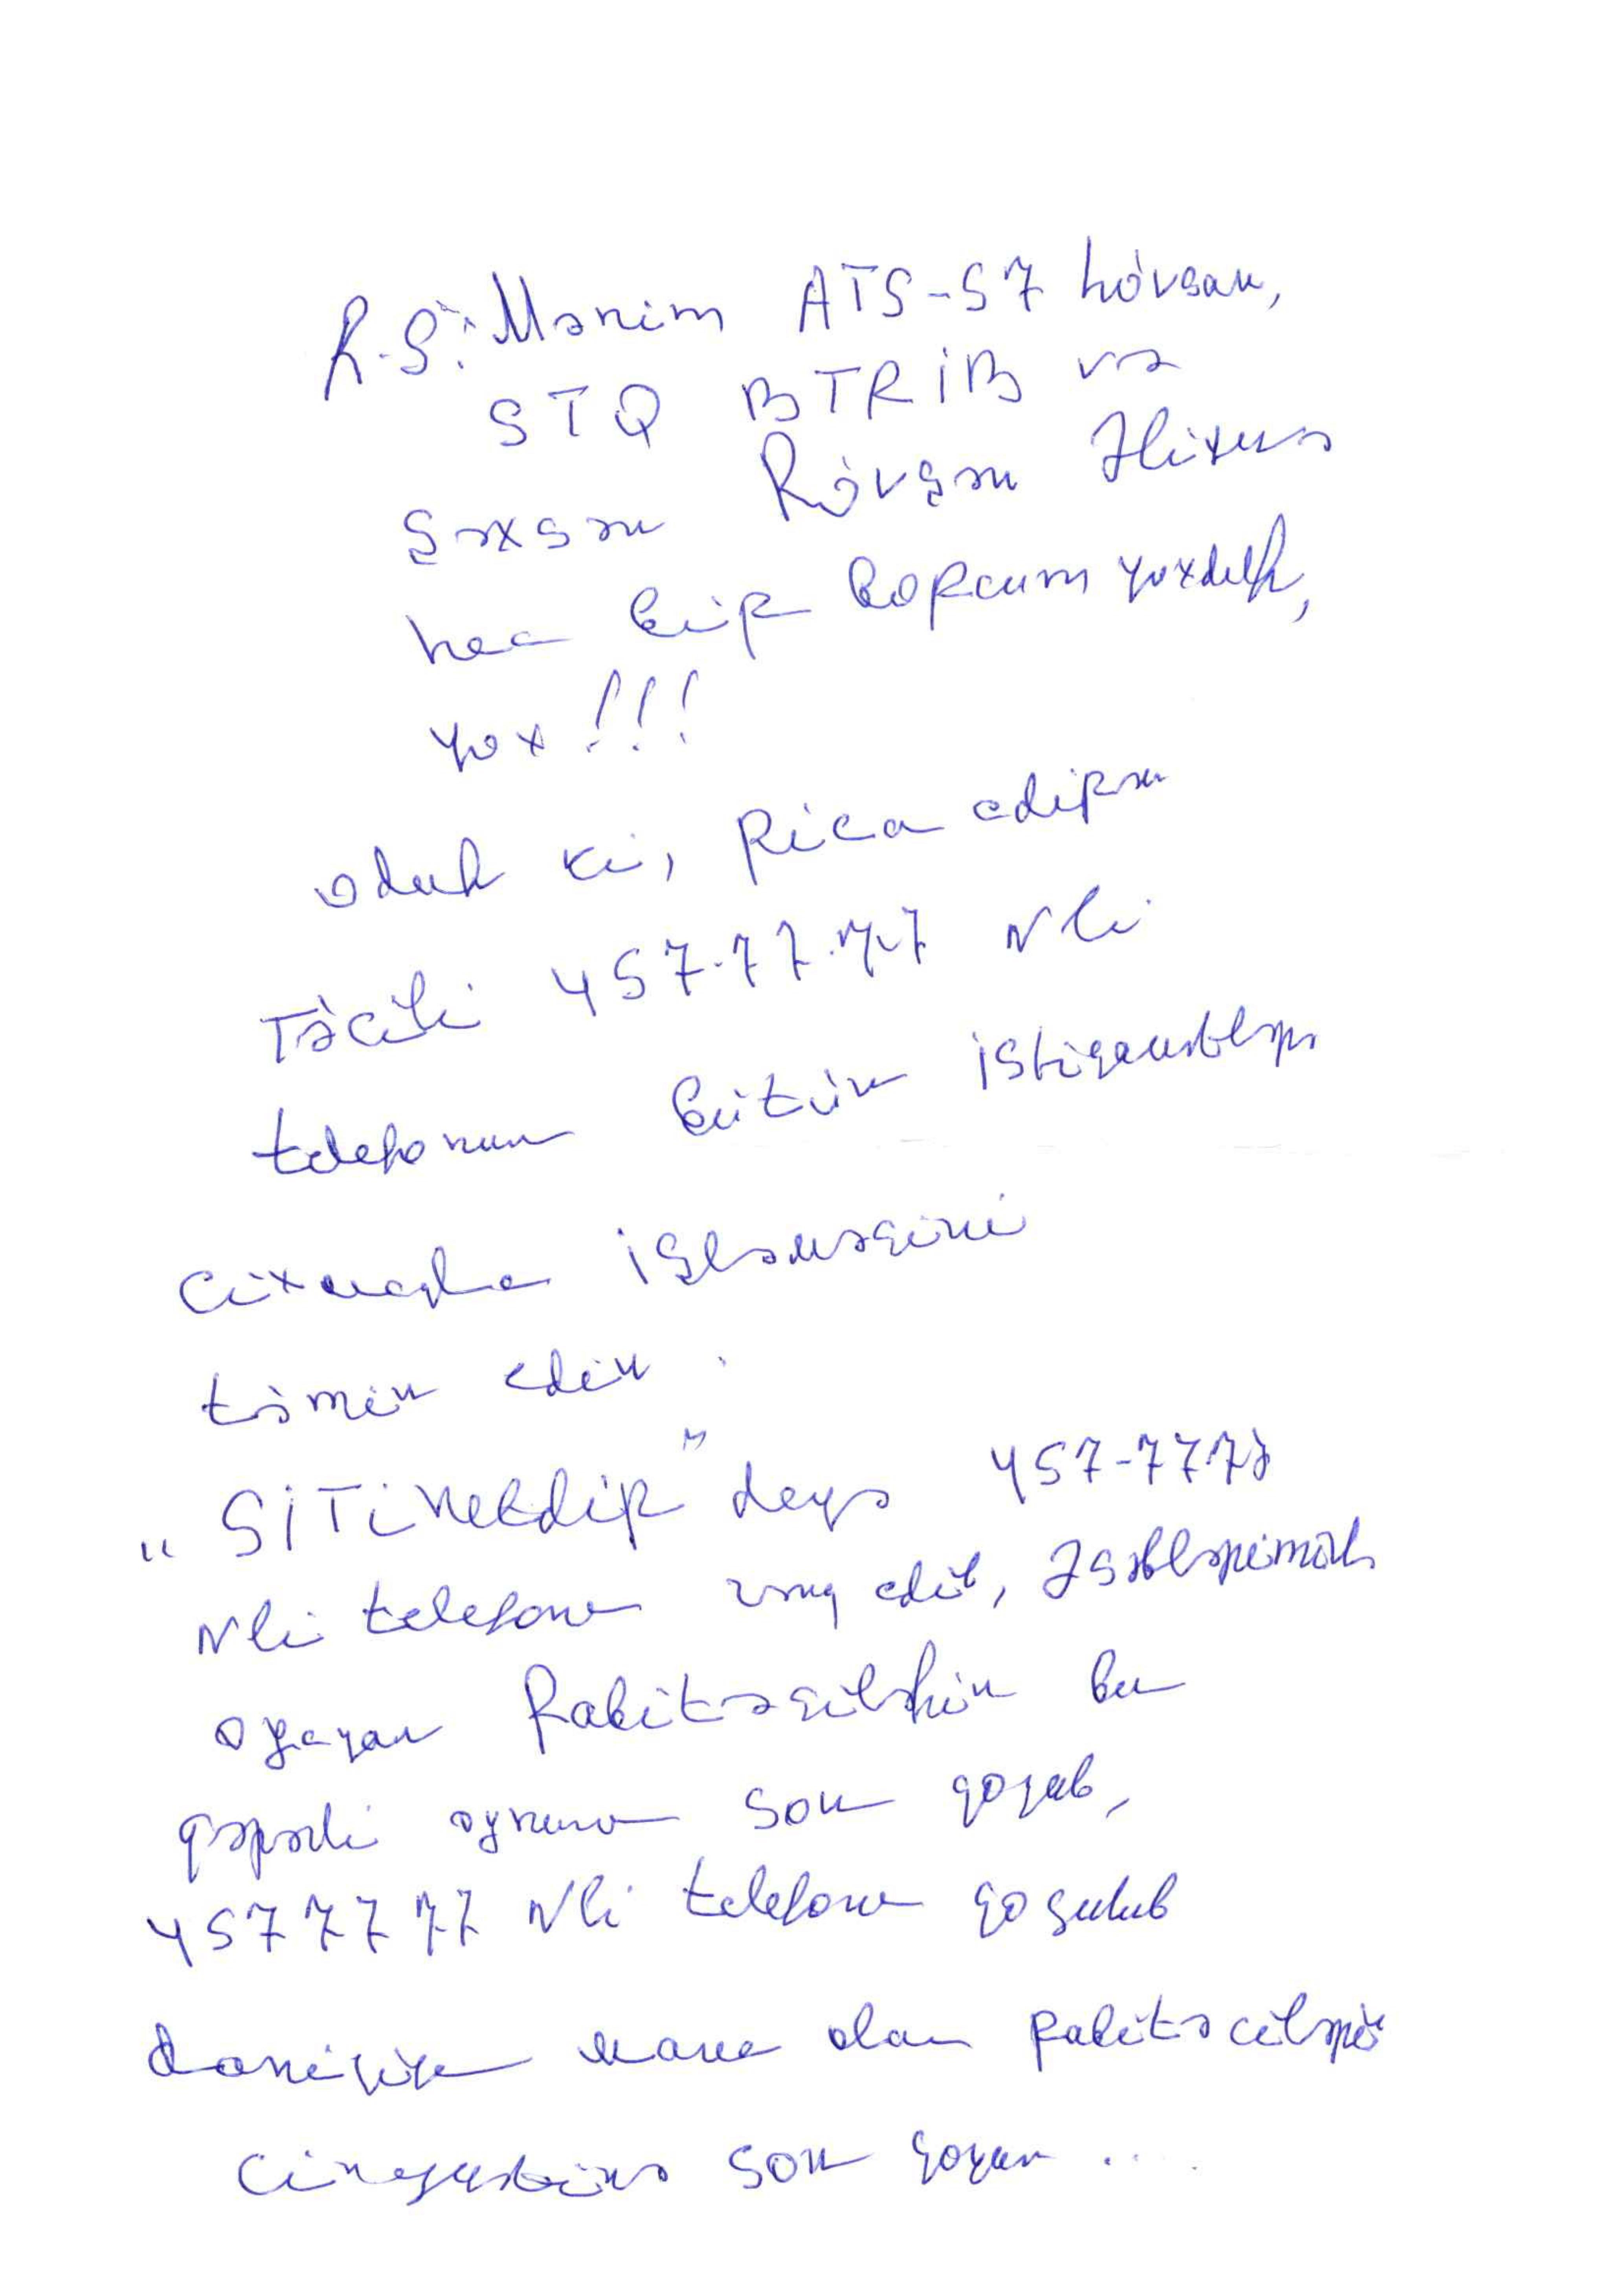 P.S: Mənim ATS-57 hövsan,
STQ BTRİB və
şəxsən Rövşən Əlixana
heç bir borcum yoxdur,
yox!!!
odur ki, Rica edirəm
Təcili 457.77.77 Nli
telefonun bütün istiqamətlərə
çıxmaqla işləməsini
təmin edin.
„SİTİNetdir" deyə 457-7777
Nli telefona zəng edib, Əsəblərimlə
oynayan Rabitəçilərin bu
qərəzli oyununa son qoyub,
4577777 Nli telefona qoşulub
danışığa mane olan rabitəçilərin
cinayətinə son qoyun....